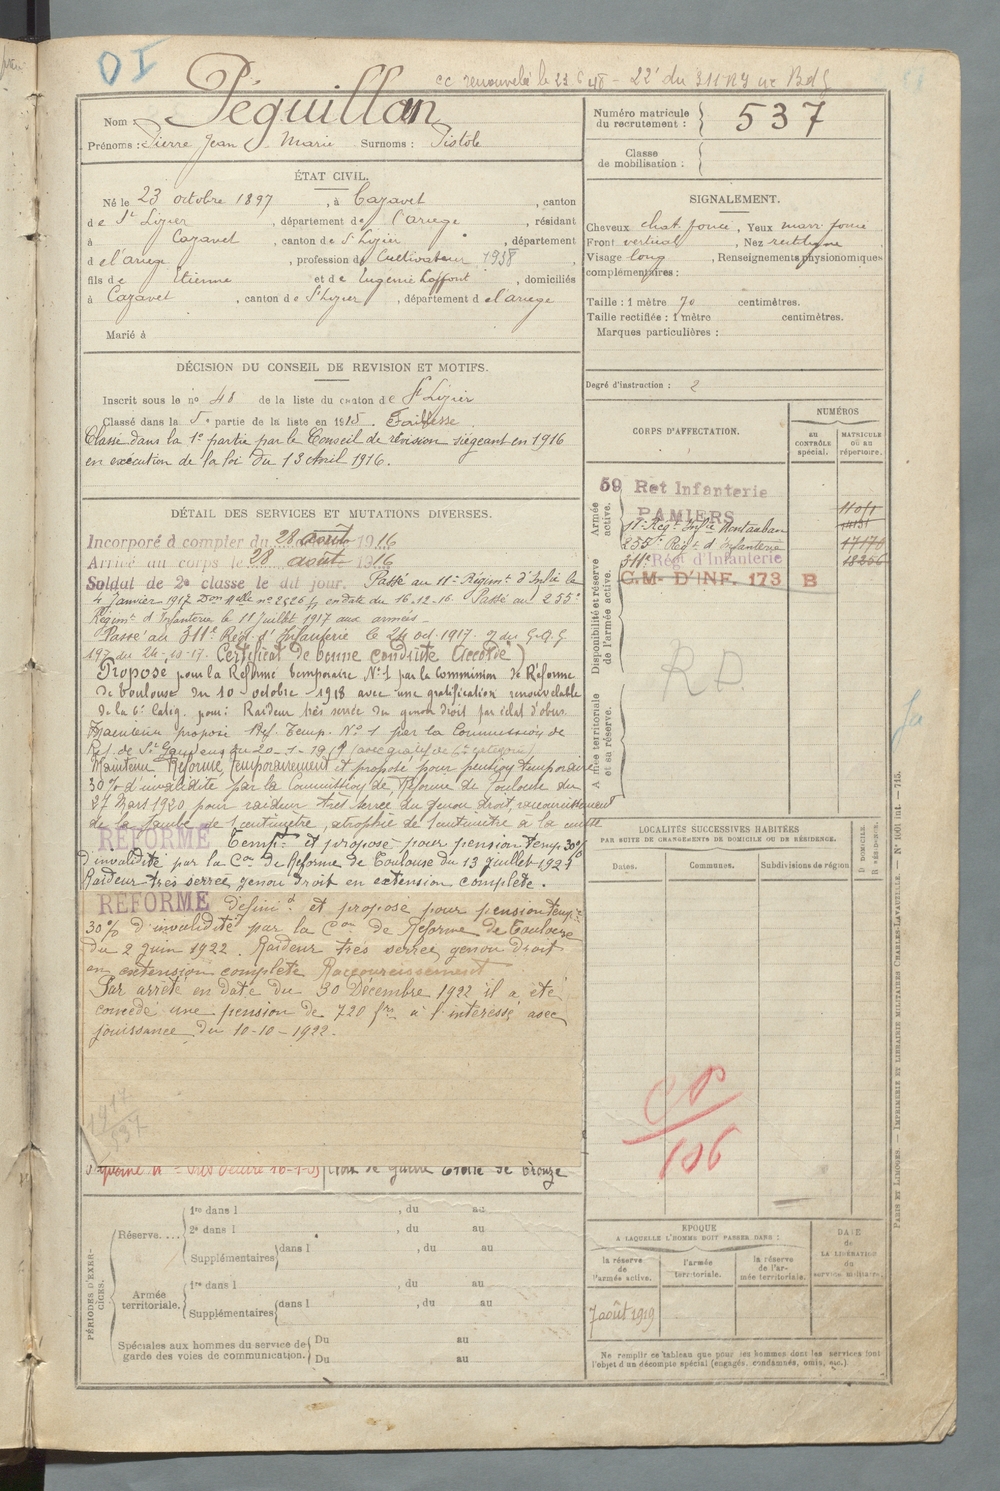 OI
cc renouvelé le 23 6 48 - 22e du 311 RI
Nom : Péquillan
Prénoms : Pierre Jean Marie Surnoms : Pistole
ÉTAT CIVIL.
Né le 23 octobre 1897, à Cazavet, canton
de St Lizier, département de l'ariege, résidant
à Cazavet, canton de St Lizier, département
d el'ariege, profession de Cultivateur 1938,
fils de Etienne et de Eugenie Laffont, domiciliés
à Cazavet, canton de St Lizier, département d el'ariege
Marié à
DÉCISION DU CONSEIL DE REVISION ET MOTIFS.
Inscrit sous le no 48 de la liste du canton de St Lizier
Classé dans la 5e partie de la liste en 1915. Faiblesse
Classé dans la 1e partie par le Conseil de révision siégeant en 1916
en exécution de la loi du 13 Avril 1916.
DÉTAIL DES SERVICES ET MUTATIONS DIVERSES.
Incorporé à compter du 28 août 1916
Arrivé au corps le 28 août 1916
Soldat de 2e classe le dit jour. Passé au 11e Régimt d'Infie le
4 Janvier 1917 Don Mlle no 2526 en date du 16-12-16. Passé au 255e
Régimt d'Infanterie le 11 Juillet 1917 aux armées -
Passé au 311e Rég. d'Infanterie le 24 oct. 1917. du G.Q.G
197 du 24-10-17. Certificat de bonne conduite (Accordé)
Proposé pour la Réforme temporaire No 1 par la commission de Réforme
de Toulouse du 10 octobre 1918 avec une gratification renouvelable
de la 6e Catég. pour : Raideur très serrée du genou droit par éclat d'obus.
Maintenu proposé Réf. Temp. No 1 par la Commission de
Réf. de St Gaudens du 20-1-19 (avec gratif de catégorie)
Maintenu Réformé temporairement et proposé pour pension temporaire
30% d'invalidité par la Commission de Réforme de Toulouse du
27 Mars 1920 pour raideur très serrée du genou droit, raccourcissement
de la jambe de 1 centimètre, atrophie de 1 centimètre à la cuisse
RÉFORMÉ Tempt et proposé pour pension temp. 30%
d'invalidité par la Con de Réforme de Toulouse du 13 juillet 1921
Raideur très serrée genou droit en extension complète.
RÉFORMÉ définit et proposé pour pension temp.
30% d'invalidité par la Con de Réforme de Toulouse
du 2 juin 1922. Raideur très serrée genou droit
en extension complète Raccourcissement
Par arrêté en date du 30 Décembre 1922 il a été
concédé une pension de 720 frs à l'intéressé avec
jouissance du 10-10-1922.
1917
537
Croix de Guerre Etoile de bronze
PÉRIODES D'EXERCICES.
Réserve....
1re dans l , du au
2e dans l , du au
Supplémentaires dans l , du au
Armée territoriale.
1re dans l , du au
Supplémentaires dans l , du au
Spéciales aux hommes du service de garde des voies de communication.
Du au
Du au
Numéro matricule du recrutement : 537
Classe de mobilisation :
SIGNALEMENT.
Cheveux chat. foncé, Yeux marr. foncé
Front vertical, Nez rectiligne
Visage long, Renseignements physionomiques
complémentaires :
Taille : 1 mètre 70 centimètres.
Taille rectifiée : 1 mètre centimètres.
Marques particulières :
Degré d'instruction : 2
CORPS D'AFFECTATION.
NUMÉROS
au CONTRÔLE spécial.
MATRICULE ou au répertoire.
Armée active.
59 Ret Infanterie
PAMIERS
11e Régt Infie Montauban
255e Régt d'Infanterie 17170
311e Régt d'Infanterie 18256
C.M. D'INF. 173 B
Disponibilité et réserve de l'armée active.
R.D.
Armée territoriale et sa réserve.
LOCALITÉS SUCCESSIVES HABITÉES
PAR SUITE DE CHANGEMENTS DE DOMICILE OU DE RÉSIDENCE.
Dates. Communes. Subdivisions de région
D DOMICILE.
R RÉSIDENCE.
CP
106
EPOQUE
A LAQUELLE L'HOMME DOIT PASSER DANS :
la réserve de l'armée active.
l'armée territoriale.
la réserve de l'armée territoriale.
DATE de LA LIBÉRATION du service militaire.
7 août 1919
Ne remplir ce tableau que pour les hommes dont les services font
l'objet d'un décompte spécial (engagés, condamnés, omis, etc.)
PARIS ET LIMOGES. — IMPRIMERIE ET LIBRAIRIE MILITAIRES CHARLES-LAVAUZELLE. — No 1001 int. — 715.